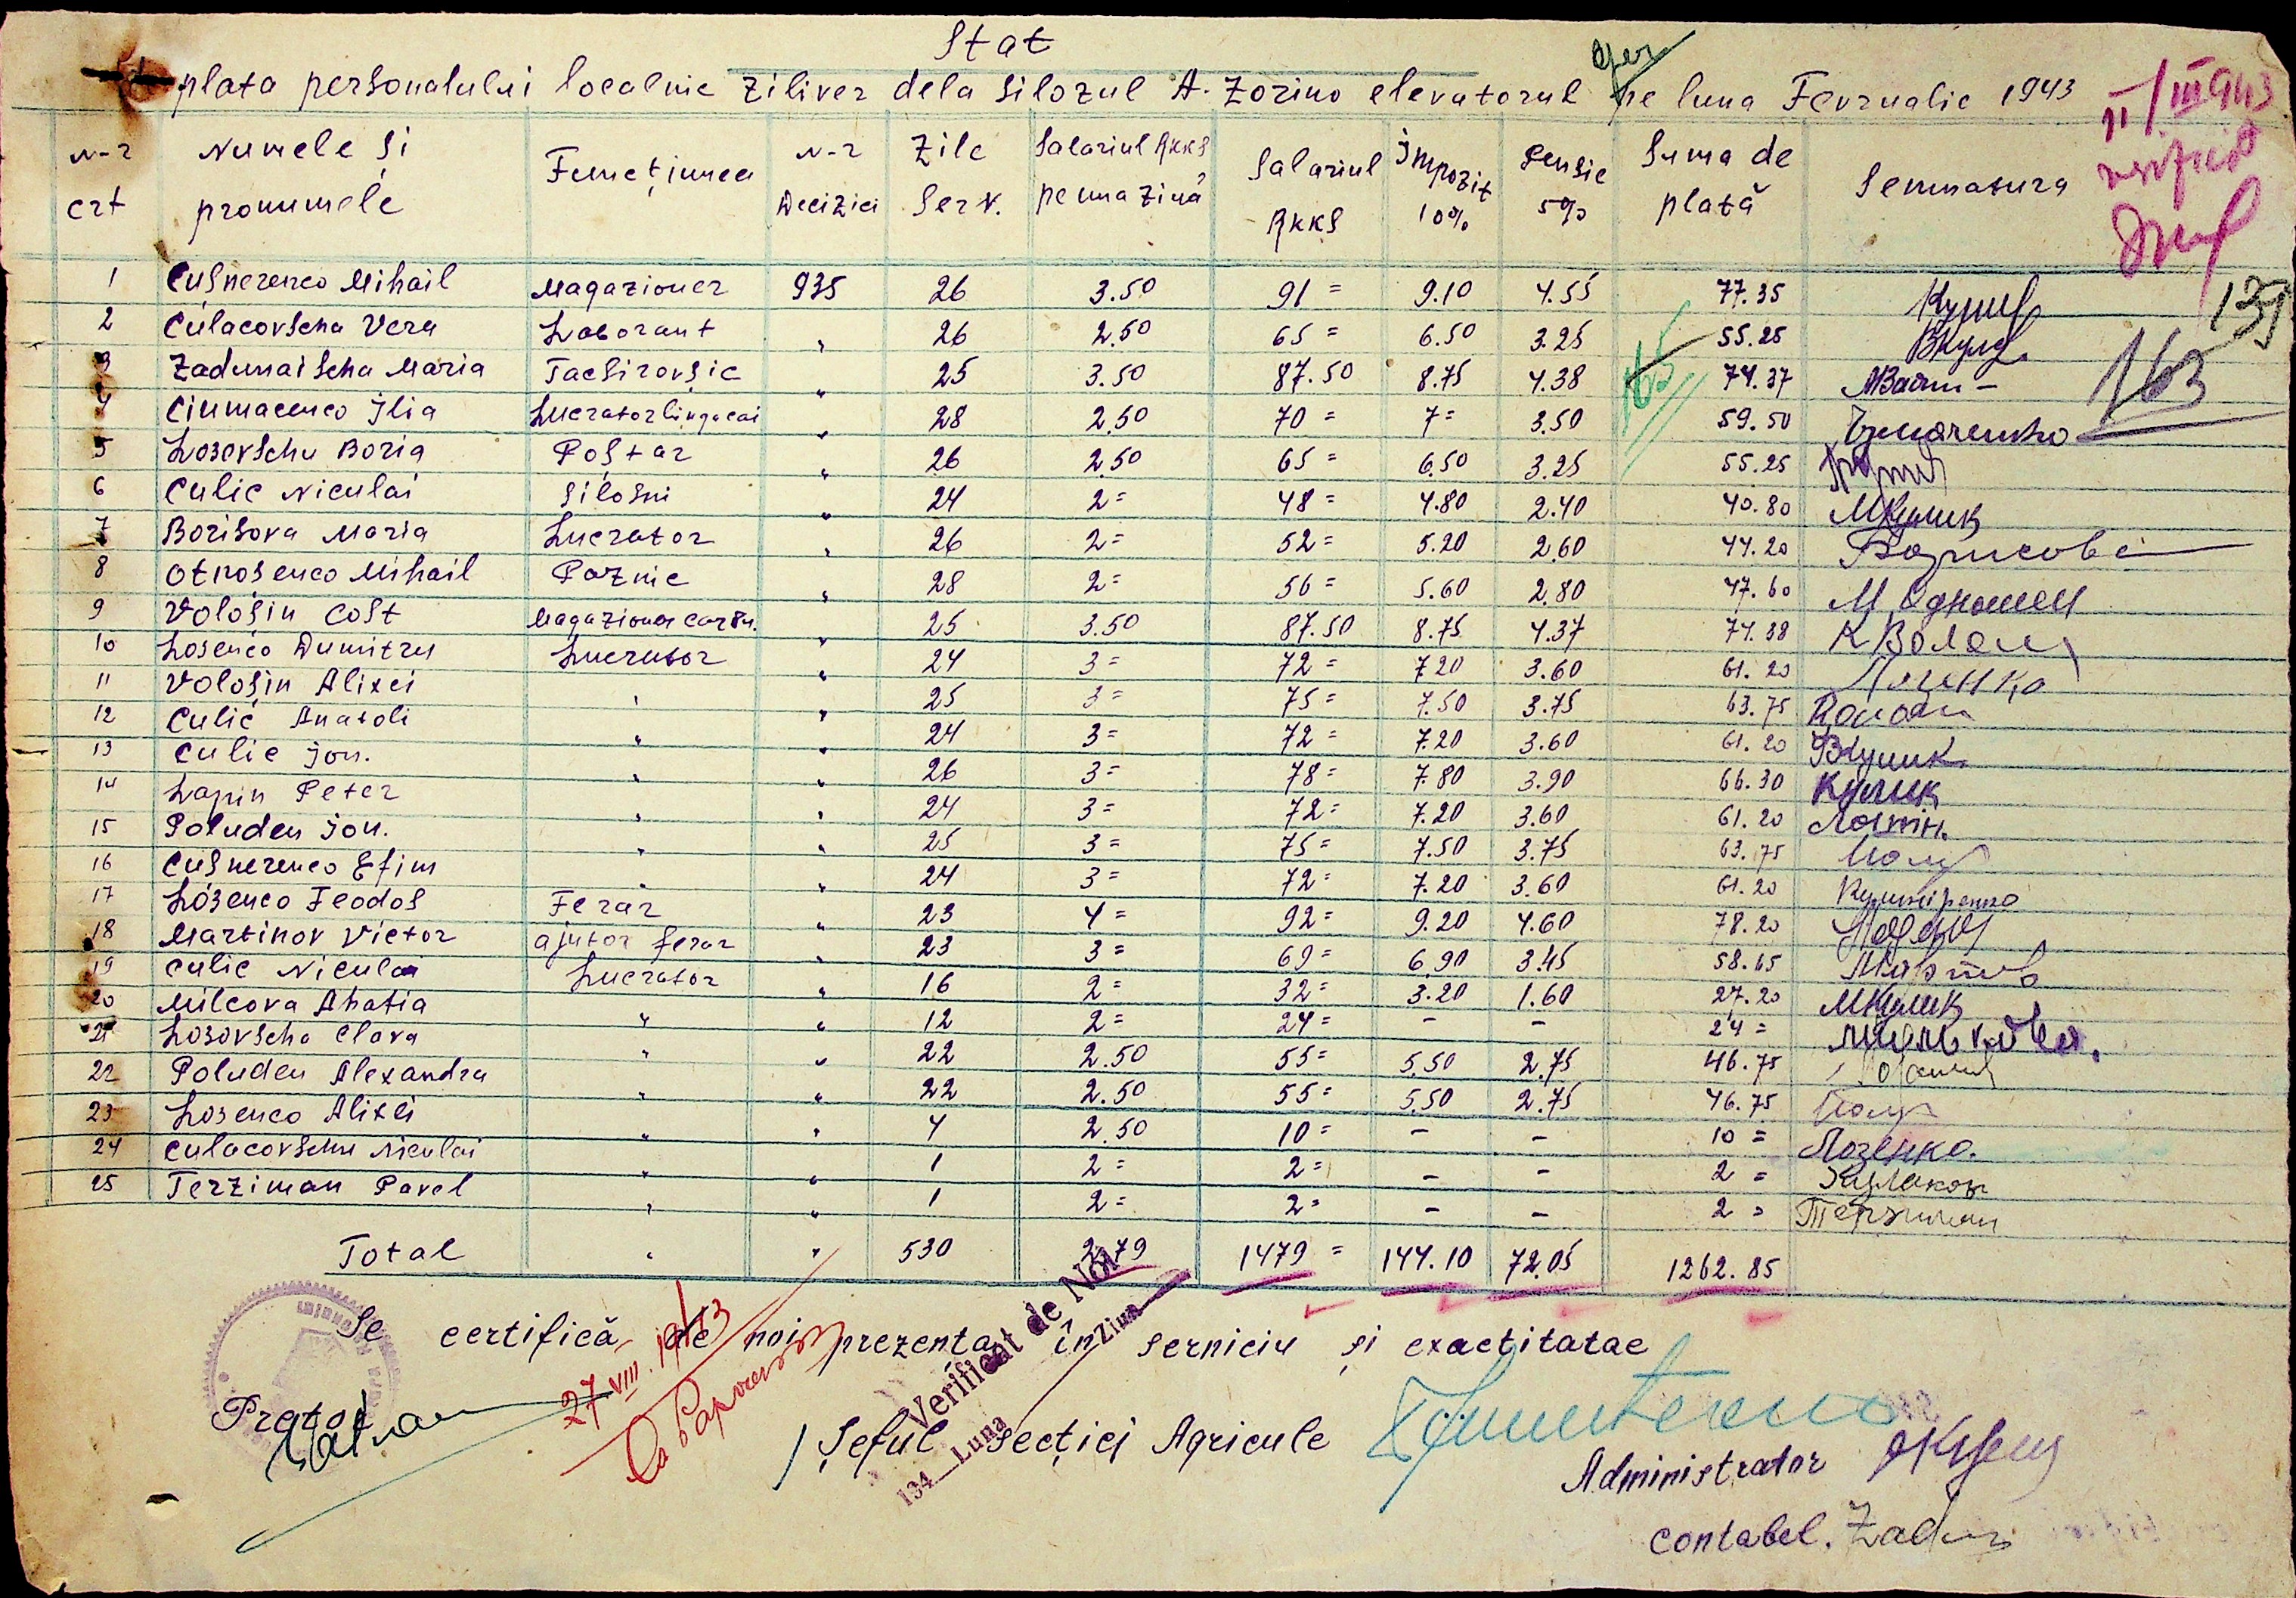 Stat
plata personalului localnic ziliver dela silozul A. Zorino elevatorul pe luna Fevrualie 1943
N-r crt Numele și pronumele Funcțiunea N-r Deciziei Zile Serv. Salariul RKKS pe una zină Salariul RKKS Impozit 10% Pensie 5% Suma de plată Semnatura
II/III 943
1 Cușnerenco Mihail Magazioner 935 26 3.50 91= 9.10 4.55 77.35
2 Culacovscha Vera Laborant " 26 2.50 65= 6.50 3.25 55.25
3 Zadunaischa Maria Tacsirovșic " 25 3.50 87.50 8.75 4.38 74.37
4 Ciumacenco Ilia Lucrator lingacai " 28 2.50 70= 7= 3.50 59.50 Чумаченко
5 Losevschu Boria Poștar " 26 2.50 65= 6.50 3.25 55.25
6 Culic Niculai Siloșni " 24 2= 48= 4.80 2.40 40.80 МКулик
7 Borisova Maria Lucrator " 26 2= 52= 5.20 2.60 44.20 Борисова
8 Otnoșenco Mihail Paznic " 28 2= 56= 5.60 2.80 47.60
9 Voloșin Cost Magazioner carbu. " 25 3.50 87.50 8.75 4.37 74.38
10 Losenco Dumitru Lucrator " 24 3= 72= 7.20 3.60 61.20
11 Voloșin Alixei " " 25 3= 75= 7.50 3.75 63.75
12 Culic Anatoli " " 24 3= 72= 7.20 3.60 61.20
13 Culic Jon. " " 26 3= 78= 7.80 3.90 66.30 Кулик
14 Lapin Peter " " 24 3= 72= 7.20 3.60 61.20
15 Poluden Jon. " " 25 3= 75= 7.50 3.75 63.75
16 Cușnerenco Efim " " 24 3= 72= 7.20 3.60 61.20
17 Losenco Feodos Ferar " 23 4= 92= 9.20 4.60 78.20
18 Martinov Victor ajutor ferar " 23 3= 69= 6.90 3.45 58.65
19 Culic Niculai Lucrator " 16 2= 32= 3.20 1.60 27.20 МКулик
20 Milcova Ahatia " " 12 2= 24= - - 24=
21 Losovscha Clava " " 22 2.50 55= 5.50 2.75 46.75
22 Poluden Alexandra " " 22 2.50 55= 5.50 2.75 46.75
23 Losenco Alixei " " 4 2.50 10= - - 10= Лозенко.
24 Culacovschu Niculai " " 1 2= 2= - - 2=
25 Terziman Pavel " " 1 2= 2= - - 2= Терзиман
Total " " 530 2.79 1479= 144.10 72.05 1262.85
163
139
165
Se certifică de noi prezenta în serviciu și exactitatae
27 VIII 1943
Verificat de Noi
194 Luna Ziua
Pretor
Șeful Secției Agricule
Administrator
contabel.